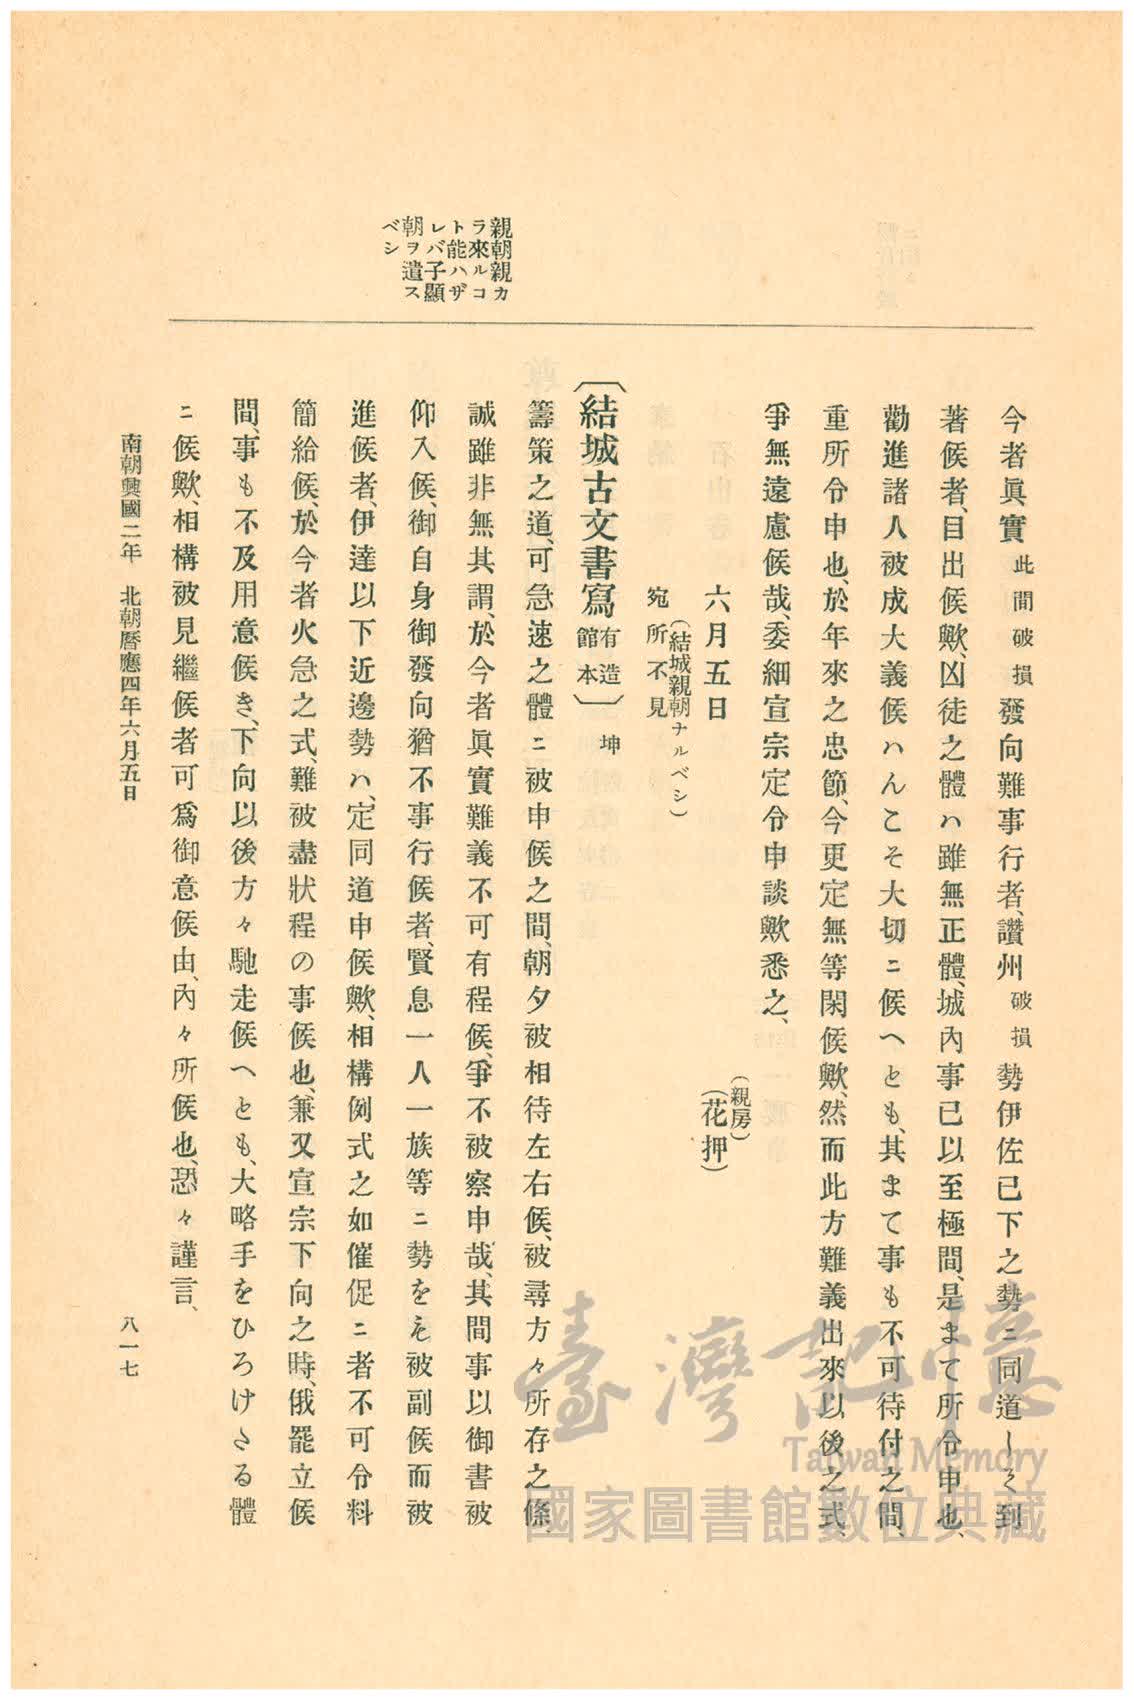 親朝親カ
ラ來ルコ
ト能ハザ
レバ子顯
朝ヲ遣ス
ベシ
今者眞實此間破損發向難事行者、讚州破損勢伊佐已下之勢ニ同道しそ到
著候者、目出候歟、凶徒之體ハ雖無正體、城內事已以至極間、是まて所令申也、
勸進諸人被成大義候ハんこそ大切ニ候へとも、其まて事も不可待付之間、
重所令申也、於年來之忠節、今更定無等閑候歟、然而此方難義出來以後之式、
爭無遠慮候哉、委細宣宗定令申談歟悉之、
六月五日
(親房)
(花押)
(結城親朝ナルベシ)
宛所不見
〔結城古文書寫有造館本〕坤
籌策之道、可急速之體ニ被申候之間、朝夕被相待左右候、被尋方々所存之條、
誠雖非無其謂、於今者眞實難義不可有程候、爭不被察申哉、其間事以御書被
仰入候、御自身御發向猶不事行候者、賢息一人一族等ニ勢をも被副候而被
進候者、伊達以下近邊勢ハ、定同道申候歟、相構例式之如催促ニ者不可令料
簡給候、於今者火急之式、難被盡狀程の事候也、兼又宣宗下向之時、俄罷立候
間、事も不及用意候き、下向以後方々馳走候へとも、大略手をひろけたる體
ニ候歟、相構被見繼候者可爲御意候由、內々所候也、恐々謹言、
南朝興國二年 北朝曆應四年六月五日
八一七
臺灣記憶
Taiwan Memory
國家圖書館數位典藏